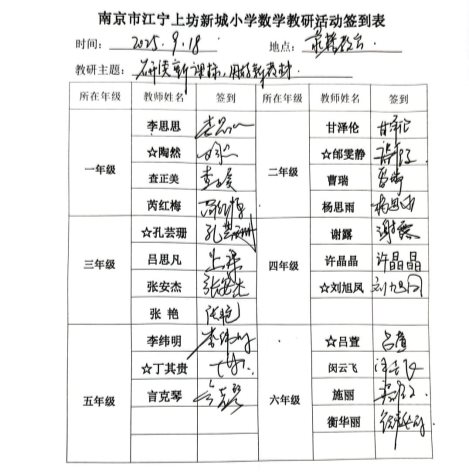 南京市江宁上坊新城小学数学教研活动签到表
时间：2025.9.18 地点：录播教室
教研主题：研读新课标，用好新教材
所在年级 教师姓名 签到 所在年级 教师姓名 签到
一年级 二年级
李思思 李思思 甘泽伦 甘泽伦
☆陶然 陶然 ☆邰雯静
查正美 查正美 曹瑞 曹瑞
芮红梅 芮红梅 杨思雨 杨思雨
三年级 四年级
☆孔芸珊 孔芸珊 谢露 谢露
吕思凡 许晶晶 许晶晶
张安杰 张安杰 ☆刘旭凤 刘旭凤
张艳 张艳
五年级 六年级
李纬明 李纬明 ☆吕萱 吕萱
☆丁其贵 闵云飞 闵云飞
亯克琴 施丽
衡华丽